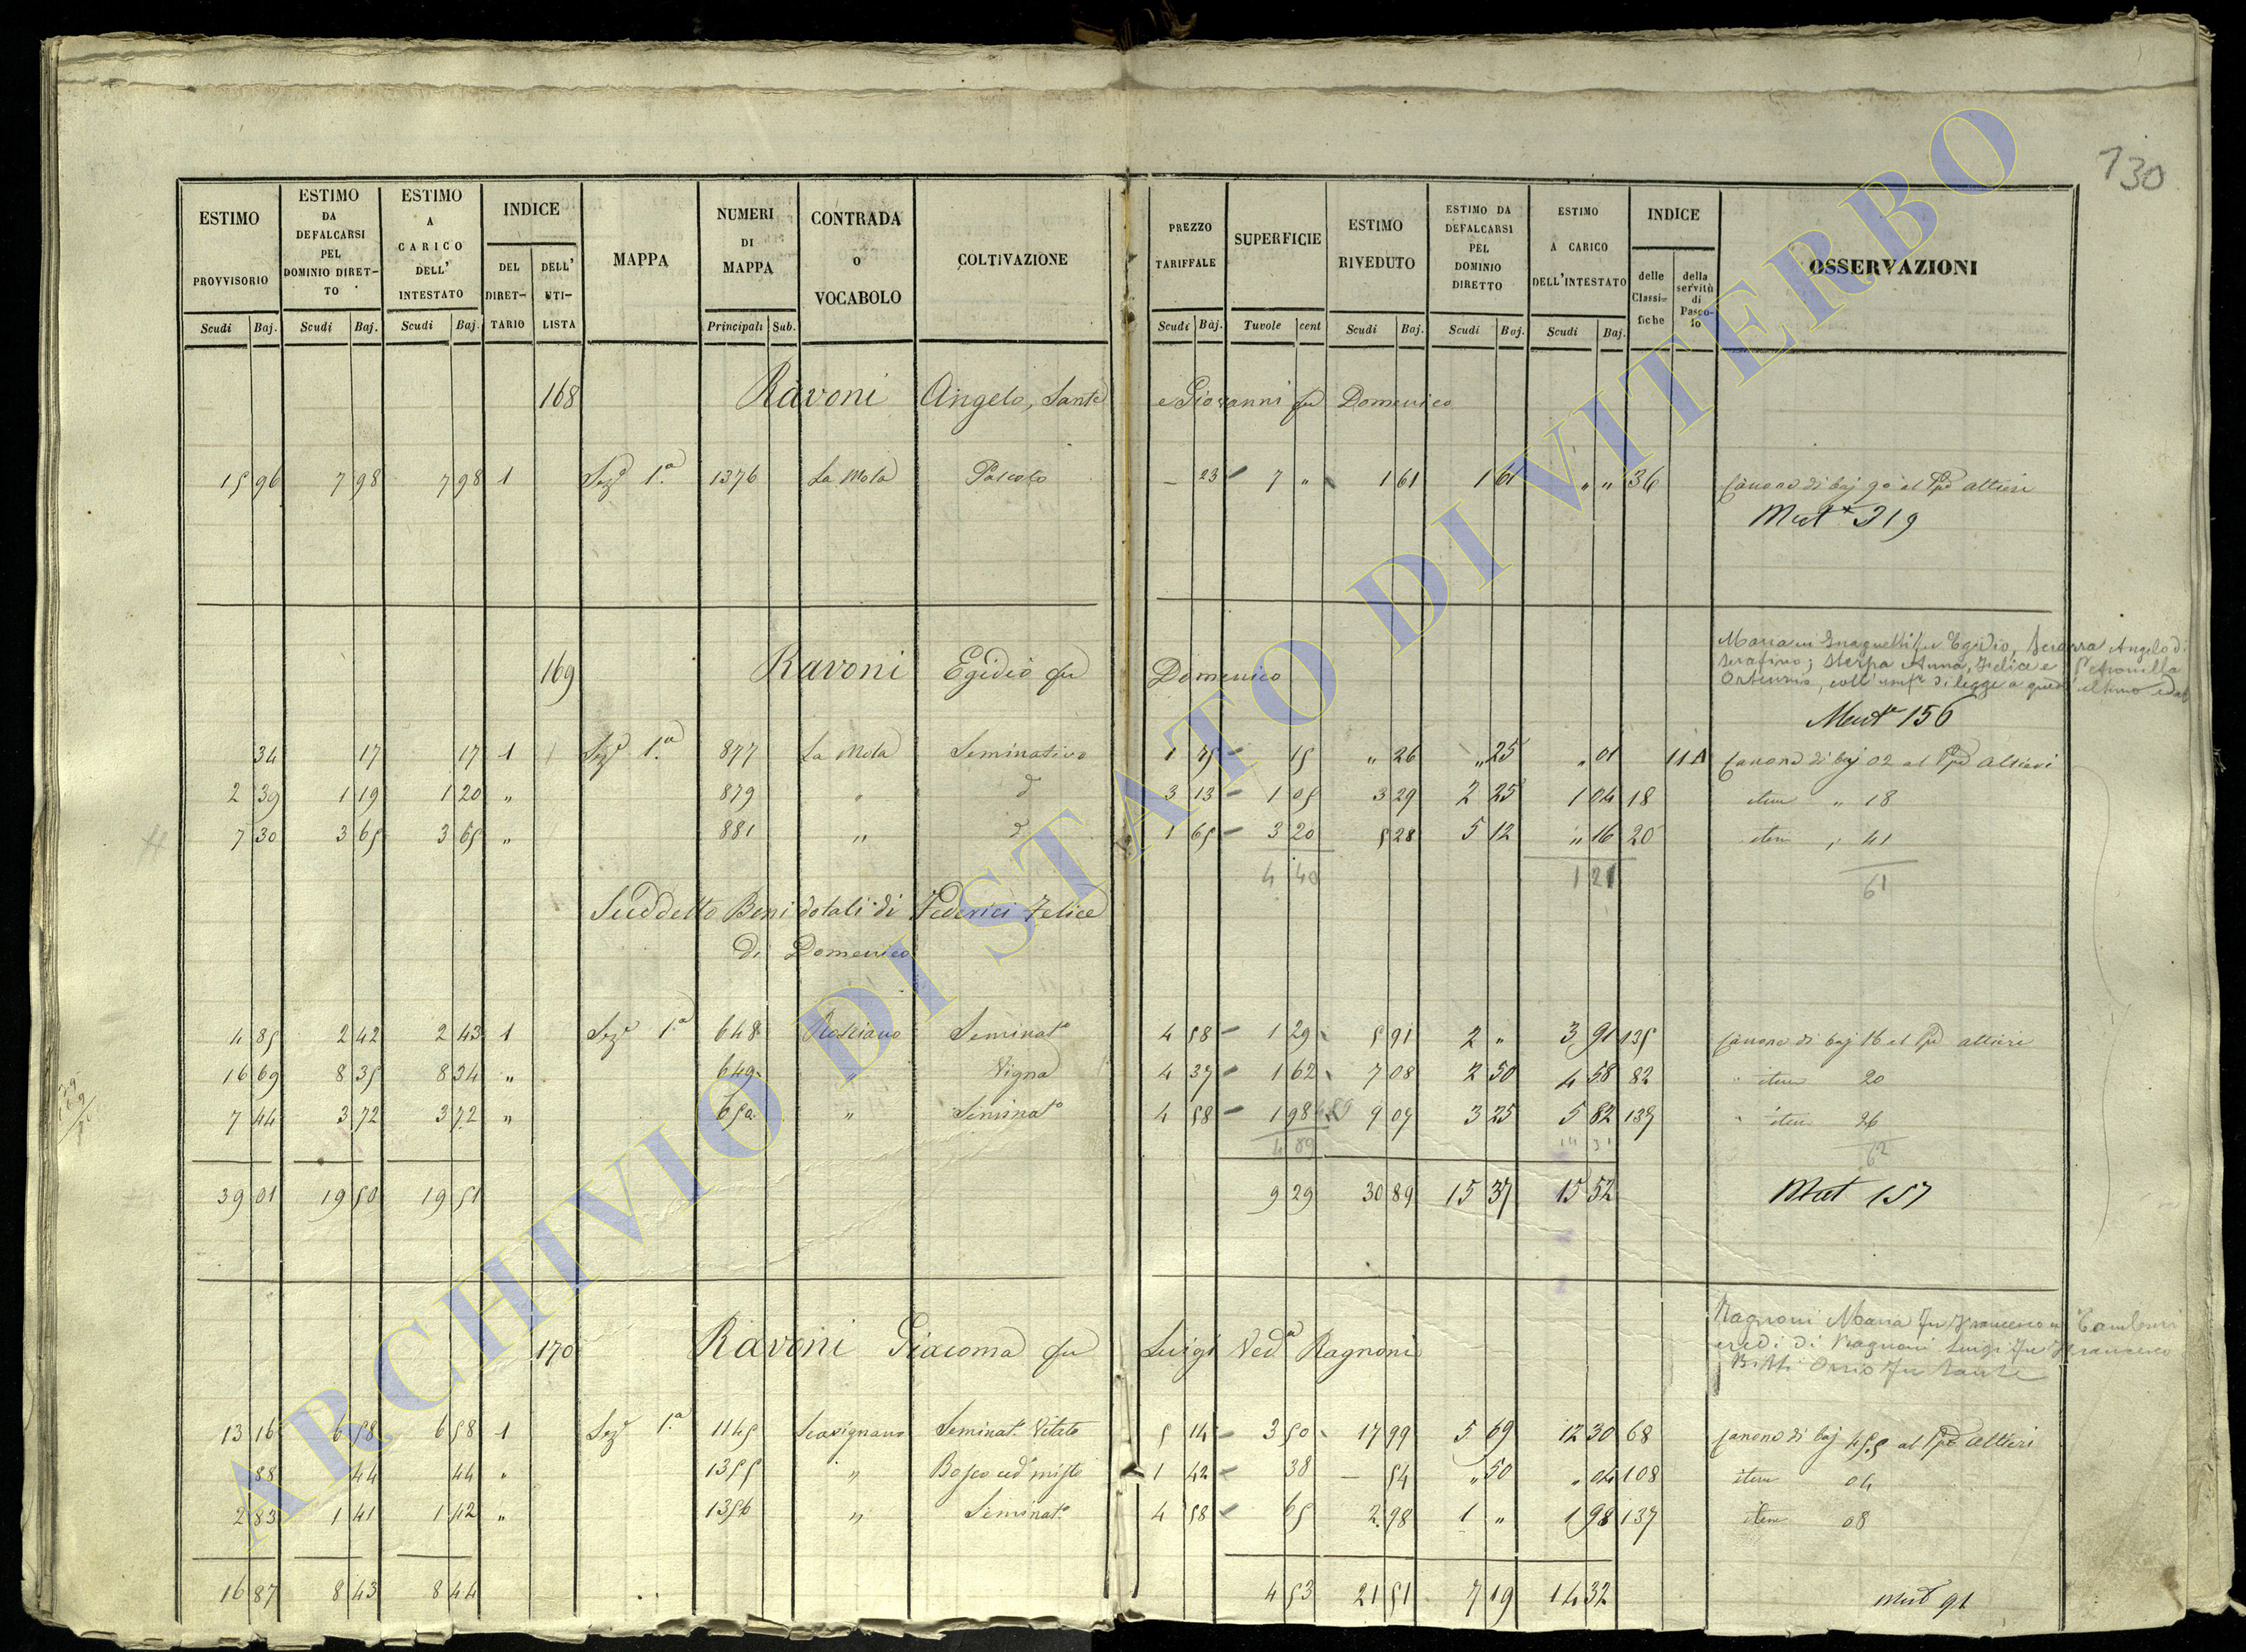 130
ESTIMO PROVVISORIO Scudi Baj.
ESTIMO DA DEFALCARSI PEL DOMINIO DIRETTO Scudi Baj.
ESTIMO A CARICO DELL' INTESTATO Scudi Baj.
INDICE DEL DIRETTARIO DELL' UTILISTA
MAPPA
NUMERI DI MAPPA Principali Sub.
CONTRADA O VOCABOLO
COLTIVAZIONE
PREZZO TARIFFALE Scudi Baj.
SUPERFICIE Tavole cent
ESTIMO RIVEDUTO Scudi Baj.
ESTIMO DA DEFALCARSI PEL DOMINIO DIRETTO Scudi Baj.
ESTIMO A CARICO DELL'INTESTATO Scudi Baj.
INDICE delle Classifiche della servitù di Pascolo
OSSERVAZIONI
168 Ravoni Angelo, Sante e Giovanni fu Domenico
15 96 7 98 7 98 1 Sez.e 1.a 1376 La Mola Pascolo — 23 7 " 1 61 1 61 " " 36 Canone di baj 90 al Ppe Altieri
Mut.e 319
169 Ravoni Egidio fu Domenico
fu Egidio, Sciarra Angelo di
Serafino; Sterpa Anna, Felice e Petronilla
Mut.e 156
34 17 17 1 Sez.e 1.a 877 La Mola Seminativo 1 75 15 " 26 " 25 " 01 11 A Canone di baj 02 al Ppe Altieri
2 39 1 19 1 20 " 879 " d 3 13 1 05 3 29 2 25 1 04 18 item " 18
7 30 3 65 3 65 " 881 " d 1 65 3 20 5 28 5 12 " 16 20 item " 41
4 40 1 21 61
Suddetto Beni dotali di Federici Felice
di Domenico
4 85 2 42 2 43 1 Sez.e 1.a 648 Rosciano Seminat.o 4 58 1 29 5 91 2 " 3 91 135 Canone di baj 16 al Ppe Altieri
16 69 8 35 8 34 " 649 " Vigna 4 37 1 62 7 08 2 50 4 58 82 item 20
7 44 3 72 3 72 " 650 " Seminat.o 4 58 1 98 9 07 3 25 5 82 137 item 26
4 89 62
39 01 19 50 19 51 9 29 30 89 15 37 15 52 Mut 157
170 Ravoni Giacoma fu Luigi Ved.a Ragnoni
Ragnoni Maria fu Francesco in Tamburi
eredi di Ragnoni Luigi fu Francesco
fu Sante
13 16 6 58 6 58 1 Sez.e 1.a 1145 Scasignano Seminat.o Vitato 5 14 3 50 17 99 5 69 12 30 68 Canone di baj 45.5 al Ppe Altieri
88 44 44 " 1355 " Bosco ced.o misto 1 42 38 — 54 " 50 " 04 108 item 04
2 83 1 41 1 42 " 1356 " Seminat.o 4 58 65 2 98 1 " 1 98 137 item 08
16 87 8 43 8 44 4 53 21 51 7 19 14 32 Mut 91
ARCHIVIO DI STATO DI VITERBO